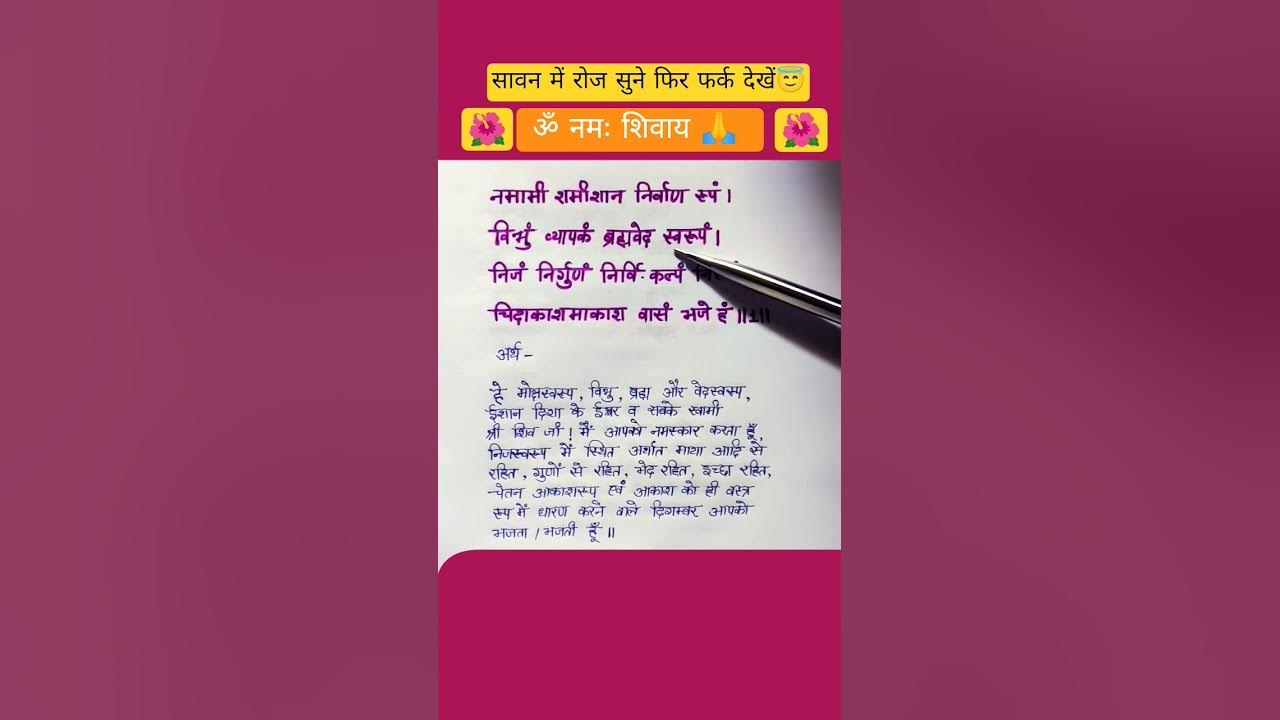 सावन में रोज सुने फिर फर्क देखें😇
🌺 ॐ नमः शिवाय 🙏 🌺
नमामी शमीशान निर्वाण रुपं।
विभुं व्यापकं ब्रह्मवेद स्वरूपं।
निजं निर्गुणं निर्वि-कल्पं
चिदाकाशमाकाश वासं भजे हं॥1॥
अर्थ -
हे मोक्षस्वरुप, विभु, ब्रह्म और वेदस्वरुप,
ईशान दिशा के ईश्वर व सबके स्वामी
श्री शिव जी! मैं आपको नमस्कार करता हूँ,
निजस्वरुप में स्थित अर्थात माया आदि से
रहित, गुणों से रहित, भेद रहित, इच्छा रहित,
चेतन आकाशरुप एवं आकाश को ही वस्त्र
रुप में धारण करने वाले दिगम्बर आपको
भजता / भजती हूँ॥